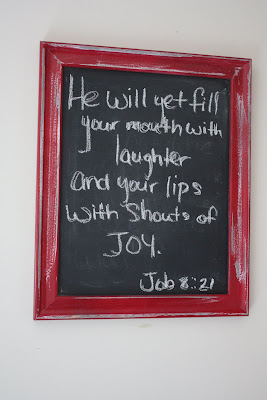 He will yet fill
your mouth with
laughter
and your lips
with shouts of
JOY.
Job 8:21